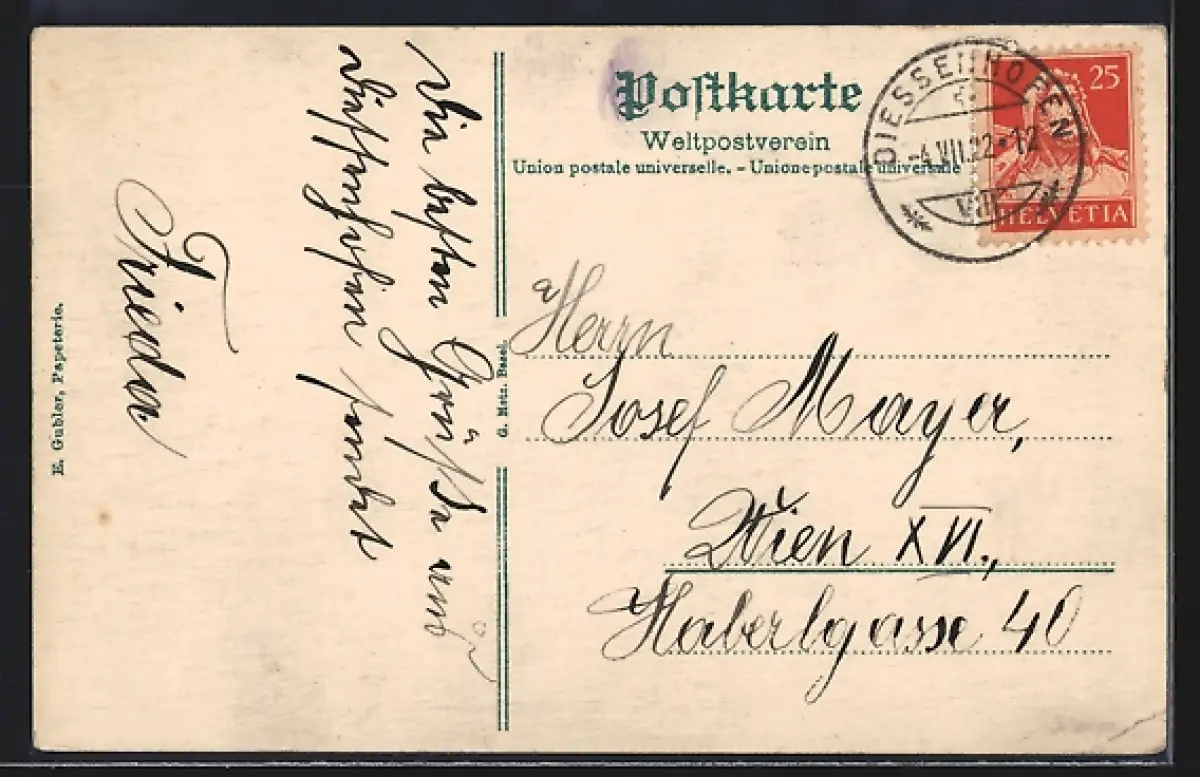 Postkarte
Weltpostverein
Union postale universelle. – Unione postale universale
DIESSENHOFEN
-4.VII.22·12
VIII
25
HELVETIA
Herrn
Josef Mayer,
Wien XVI.,
Haberlgasse 40
Die besten Grüße aus
Dießenhofen sendet
Frieda
E. Gubler, Papeterie.
G. Metz, Basel.